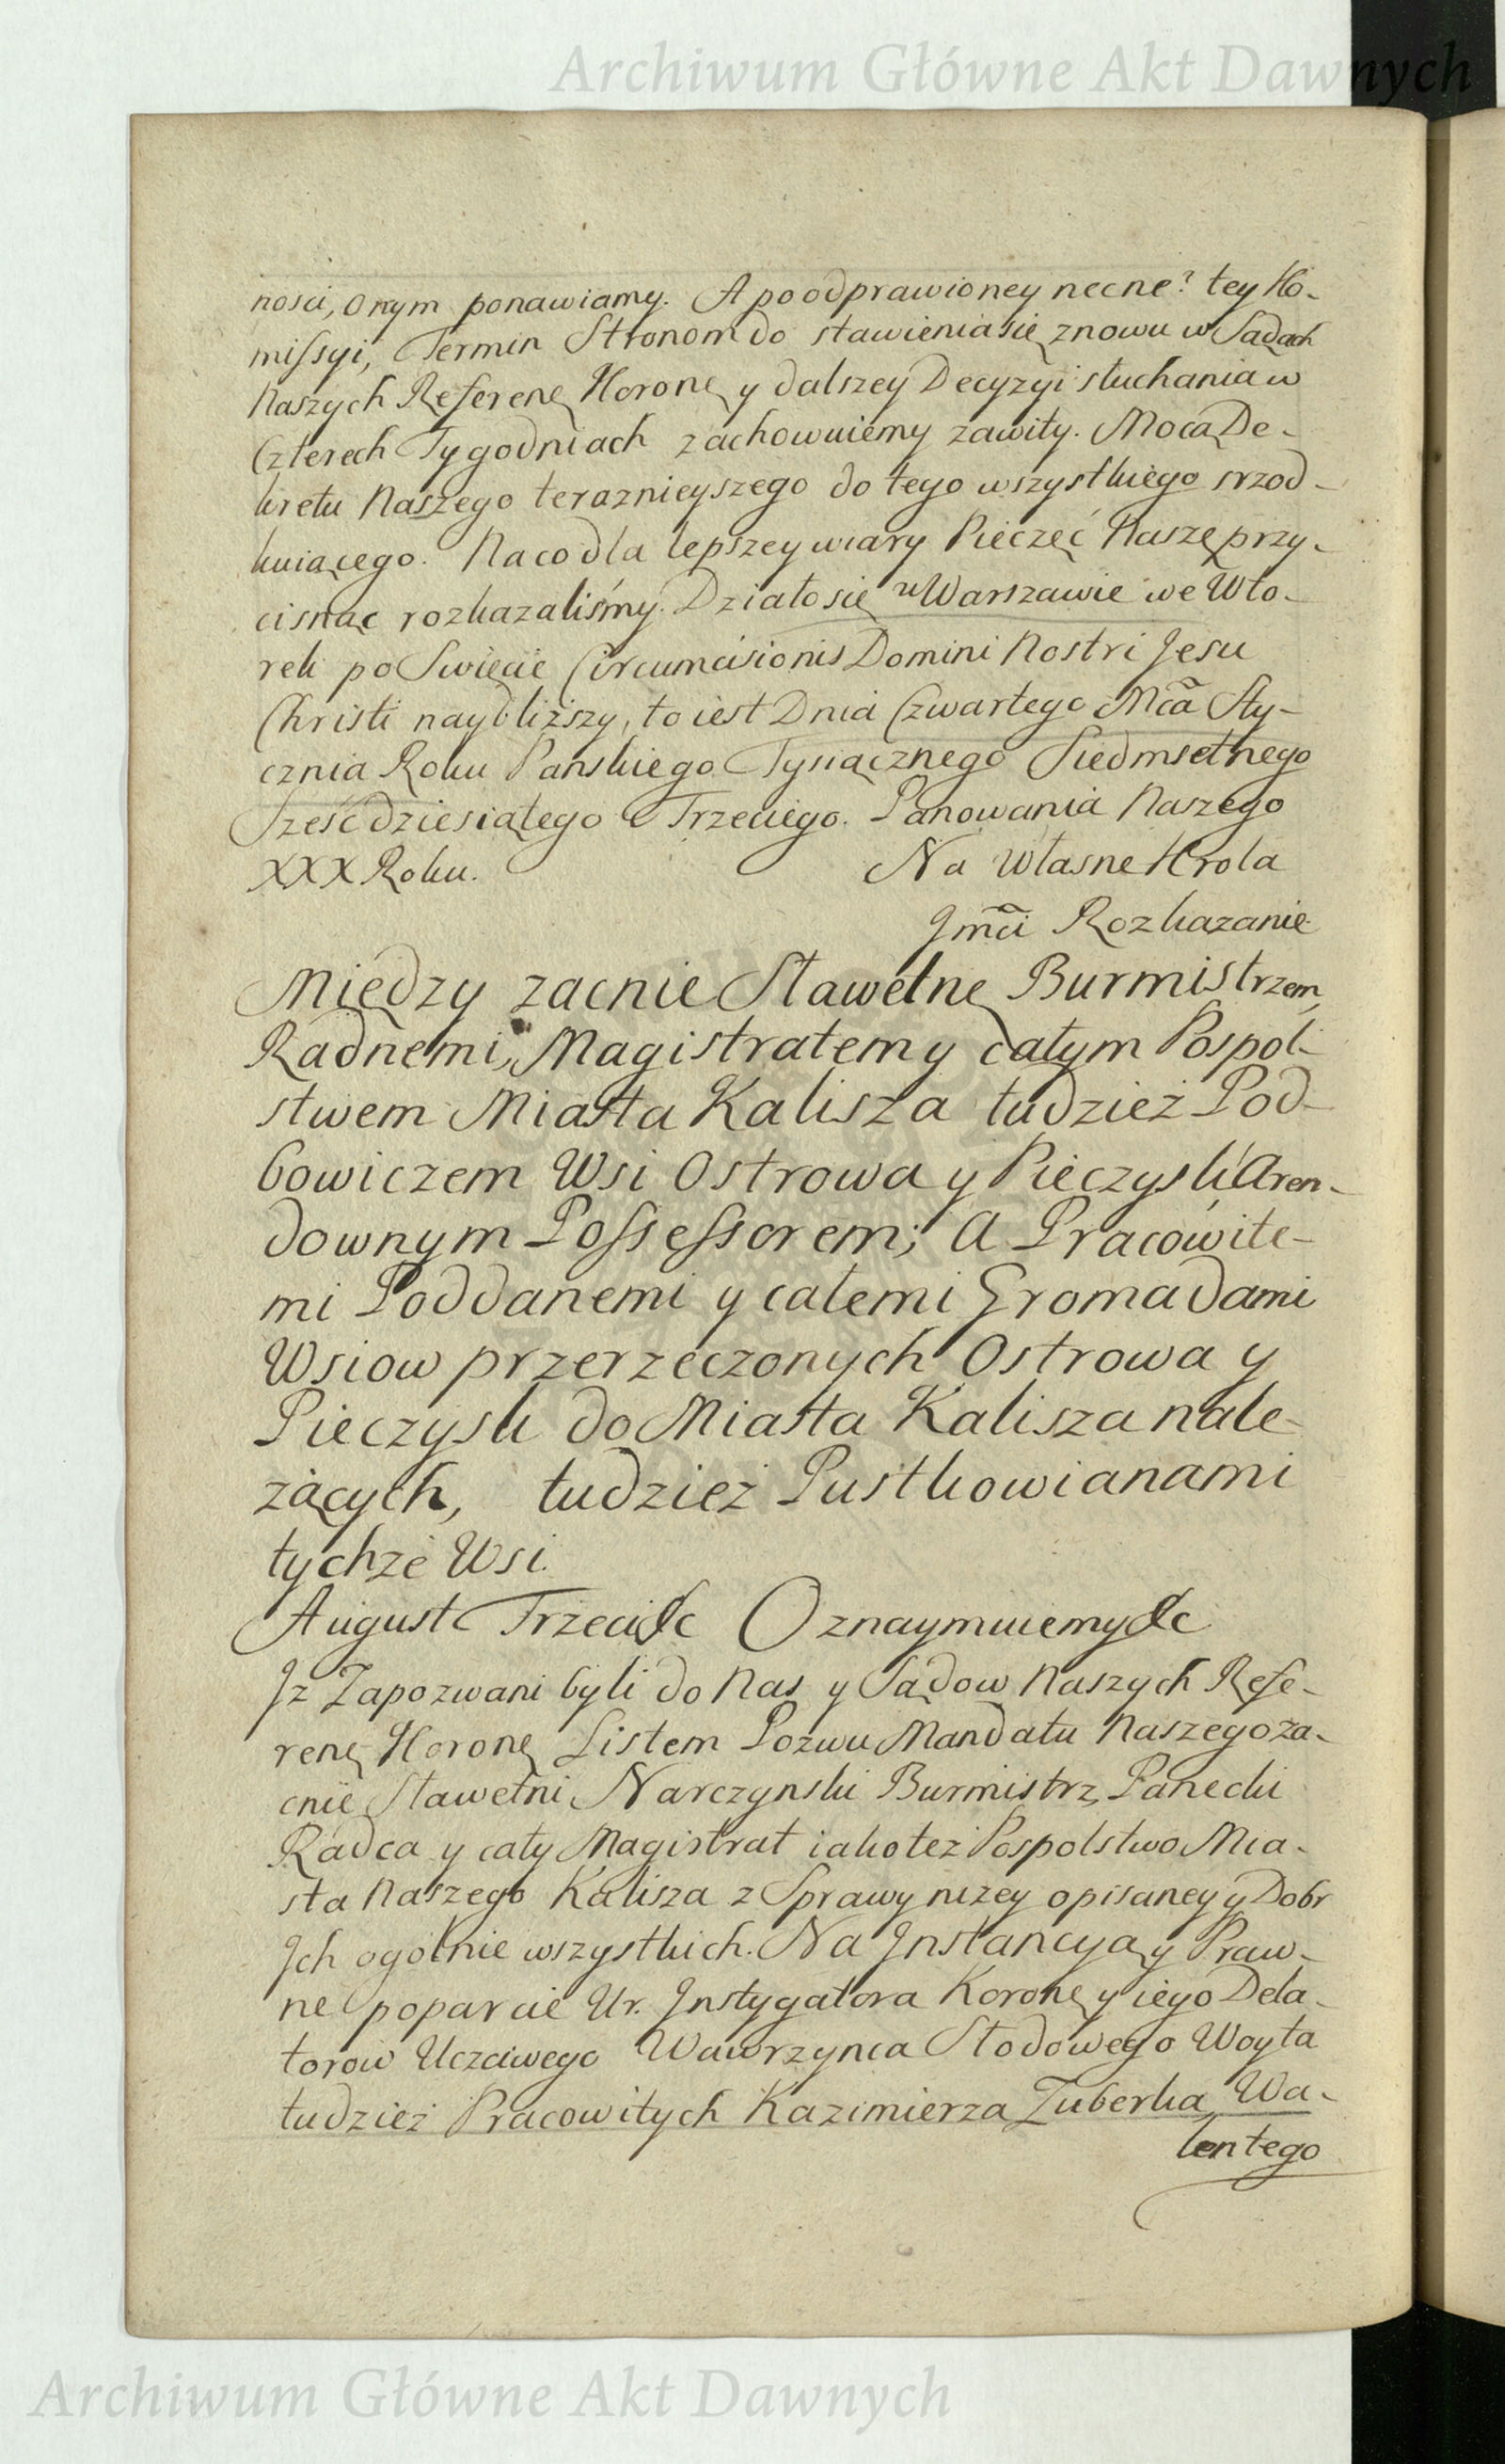 Archiwum Główne Akt Dawnych
nosci, onym ponawiamy. A po odprawioney necne? tey Ko-
missyi, Termin Stronom do stawienia się znowu w Sądach
Naszych Referenę Koronę y dalszey Decyzyi słuchania w
Czterech Tygodniach zachowuiemy zawity. Mocą De-
kretu Naszego teraznieyszego do tego wszystkiego srzod-
kuiącego. Na co dla lepszey wiary Pieczęć Naszę przy-
cisnąc rozkazaliśmy. Działo się w Warszawie we Wto-
rek po Swięcie Circumcisionis Domini Nostri Jesu
Christi naybliższy, to iest Dnia Czwartego Mca Sty-
cznia Roku Panskiego Tysiącznego Siedmsetnego
Sześćdziesiątego Trzeciego. Panowania Naszego
XXX Roku. Na Własne Krola
Jmci Rozkazanie
Między zacnie Sławetnę Burmistrzem,
Radnemi, Magistratem y całym Pospol-
stwem Miasta Kalisza tudzież Pod-
bowiczem Wsi Ostrowa y Pieczysk Aren-
downym Possessorem; A Pracowite-
mi Poddanemi y całemi Gromadami
Wsiow przerzeczonych Ostrowa y
Pieczysk do Miasta Kalisza nale-
żących, tudzież Pustkowianami
tychże Wsi.
August Trzeci &c Oznaymuiemy &c
Jz Zapozwani byli do Nas y Sądow Naszych Refe-
renę Koronę Listem Pozwu Mandatu Naszego za-
cnie Sławetni Narczynski Burmistrz, Panecki
Radca y cały Magistrat iako też Pospolstwo Mia-
sta Naszego Kalisza z Sprawy niżey opisaney y Dobr
Jch ogolnie wszystkich. Na Jnstancyą y Praw-
ne poparcie Ur. Jnstygatora Koronę y iego Dela-
torow Uczciwego Wawrzynca Stodowego Woyta
tudzież Pracowitych Kazimierza Zuberka, Wa-
lentego
Archiwum Główne Akt Dawnych